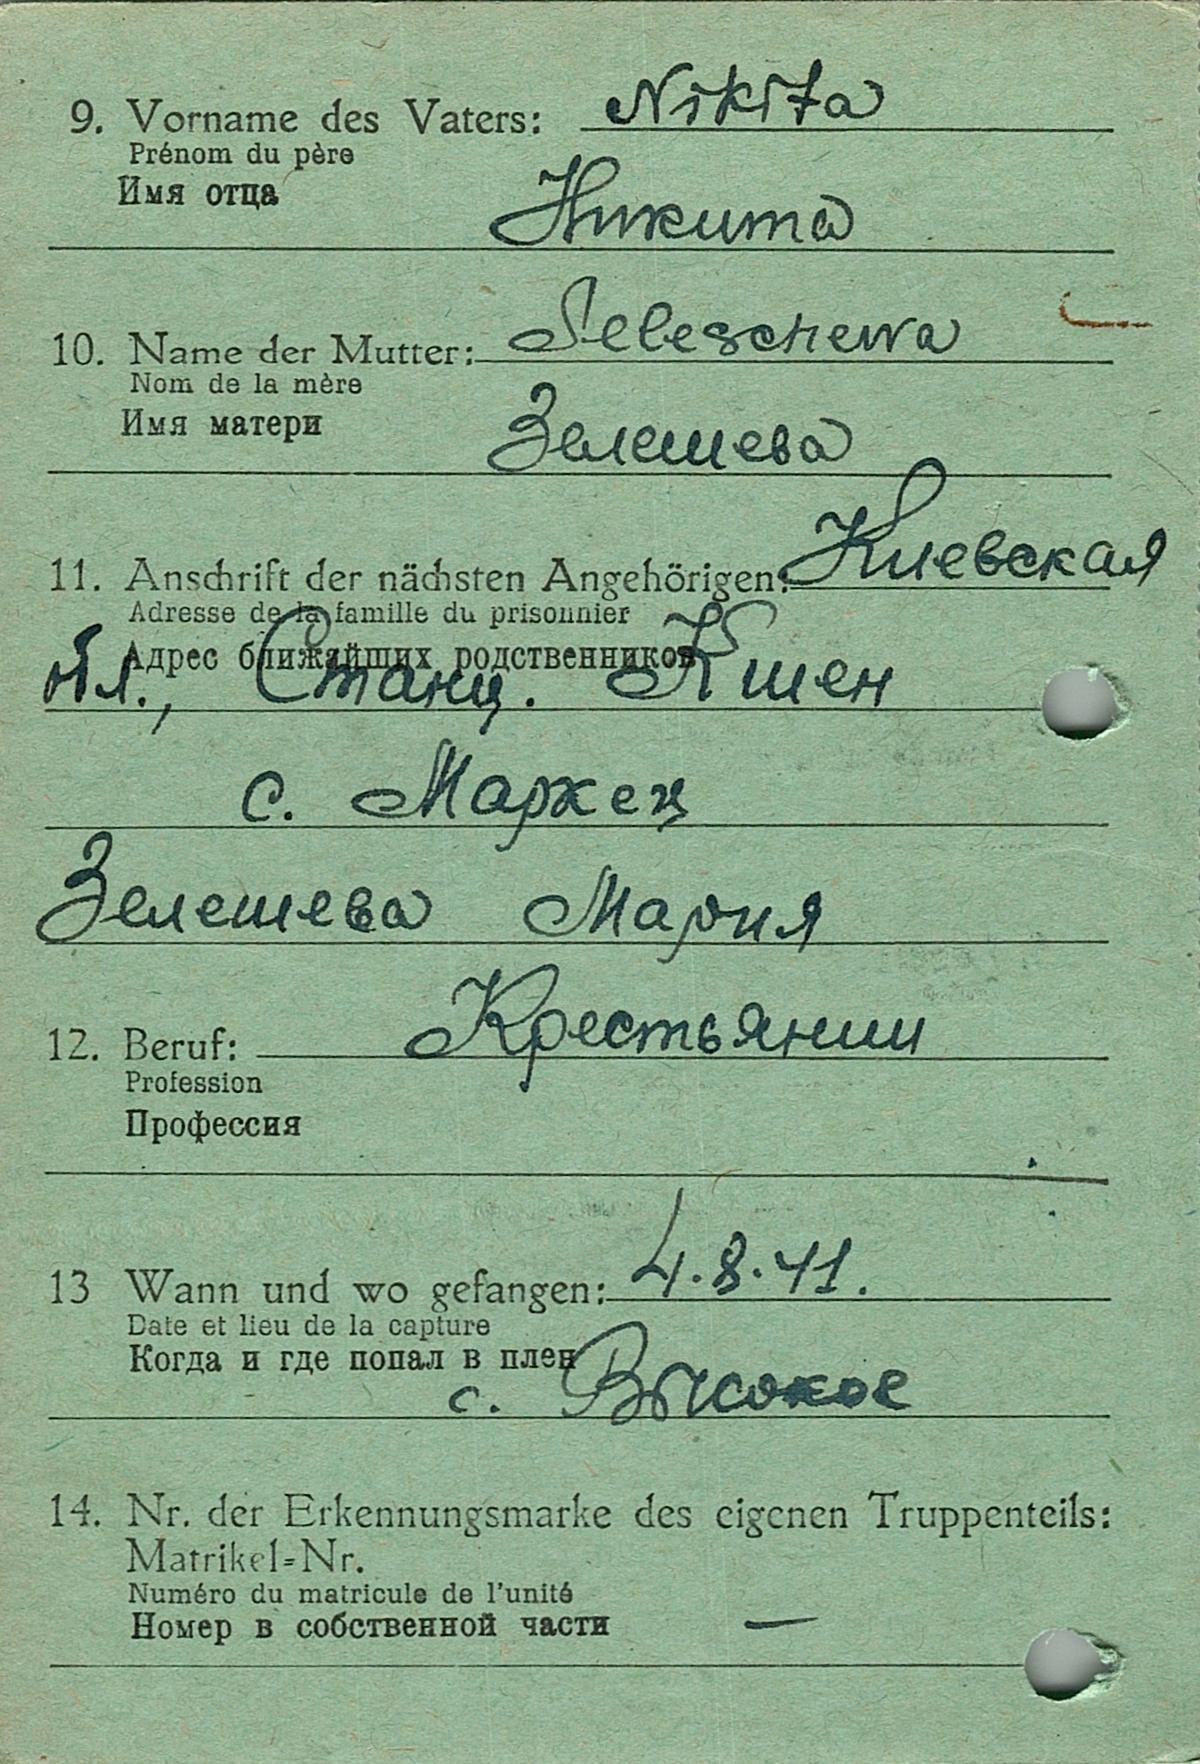 9. Vorname des Vaters: Nikita
Prénom du père
Имя отца
Никита
10. Name der Mutter: Seleschewa
Nom de la mère
Имя матери
Зелешева
11. Anschrift der nächsten Angehörigen: Киевская
Adresse de la famille du prisonnier
Адрес ближайших родственников
обл., Станц. Кшен
с. Маржец
Зелешева Мария
12. Beruf: Крестьянин
Profession
Профессия
13 Wann und wo gefangen: 4.8.41.
Date et lieu de la capture
Когда и где попал в плен
с. Высокое
14. Nr. der Erkennungsmarke des eigenen Truppenteils:
Matrikel=Nr.
Numéro du matricule de l'unité
Номер в собственной части —